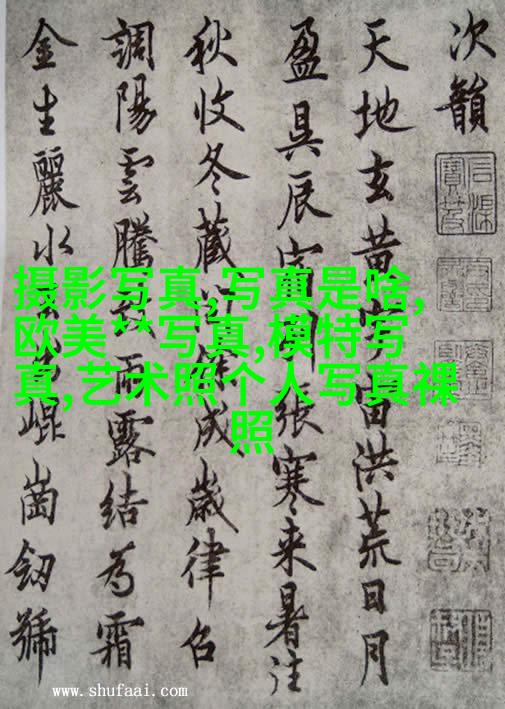 次韻
天地玄黄宇宙洪荒日月
盈昃辰宿列張寒来暑往
秋收冬藏閏餘成歲律召
調陽雲騰致雨露結為霜
金生麗水玉出崐崗劒號
摄影写真,写真是啥,
欧美**写真,模特写
真,艺术照个人写真裸
照
www.shufaai.com